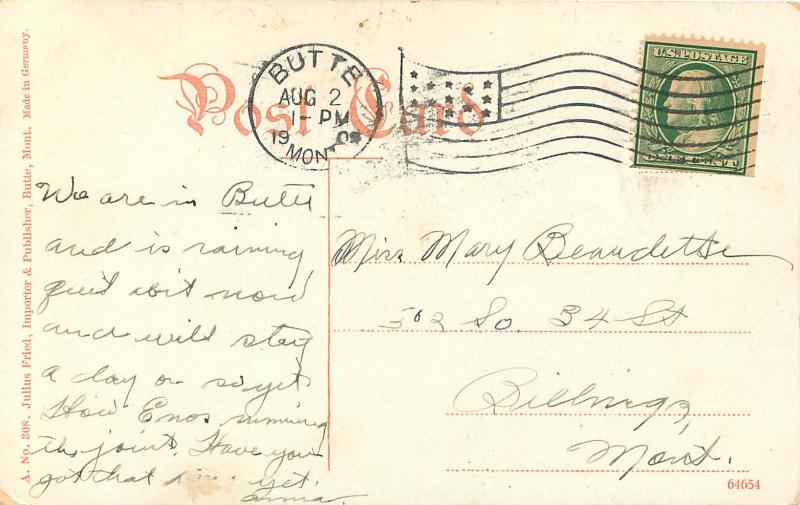 A. No. 308. Julius Fried, Importer & Publisher, Butte, Mont. Made in Germany.
Post Card
BUTTE
AUG 2
1-PM
19 09
MONT.
U.S. POSTAGE
We are in Butte
and is raining
quit abit now
and will stay
a day or so yet
How Enos running
the joint. Have you
got that yet.
Anna.
Miss Mary Beaudette
502 So. 34 St
Billings,
Mont.
64654